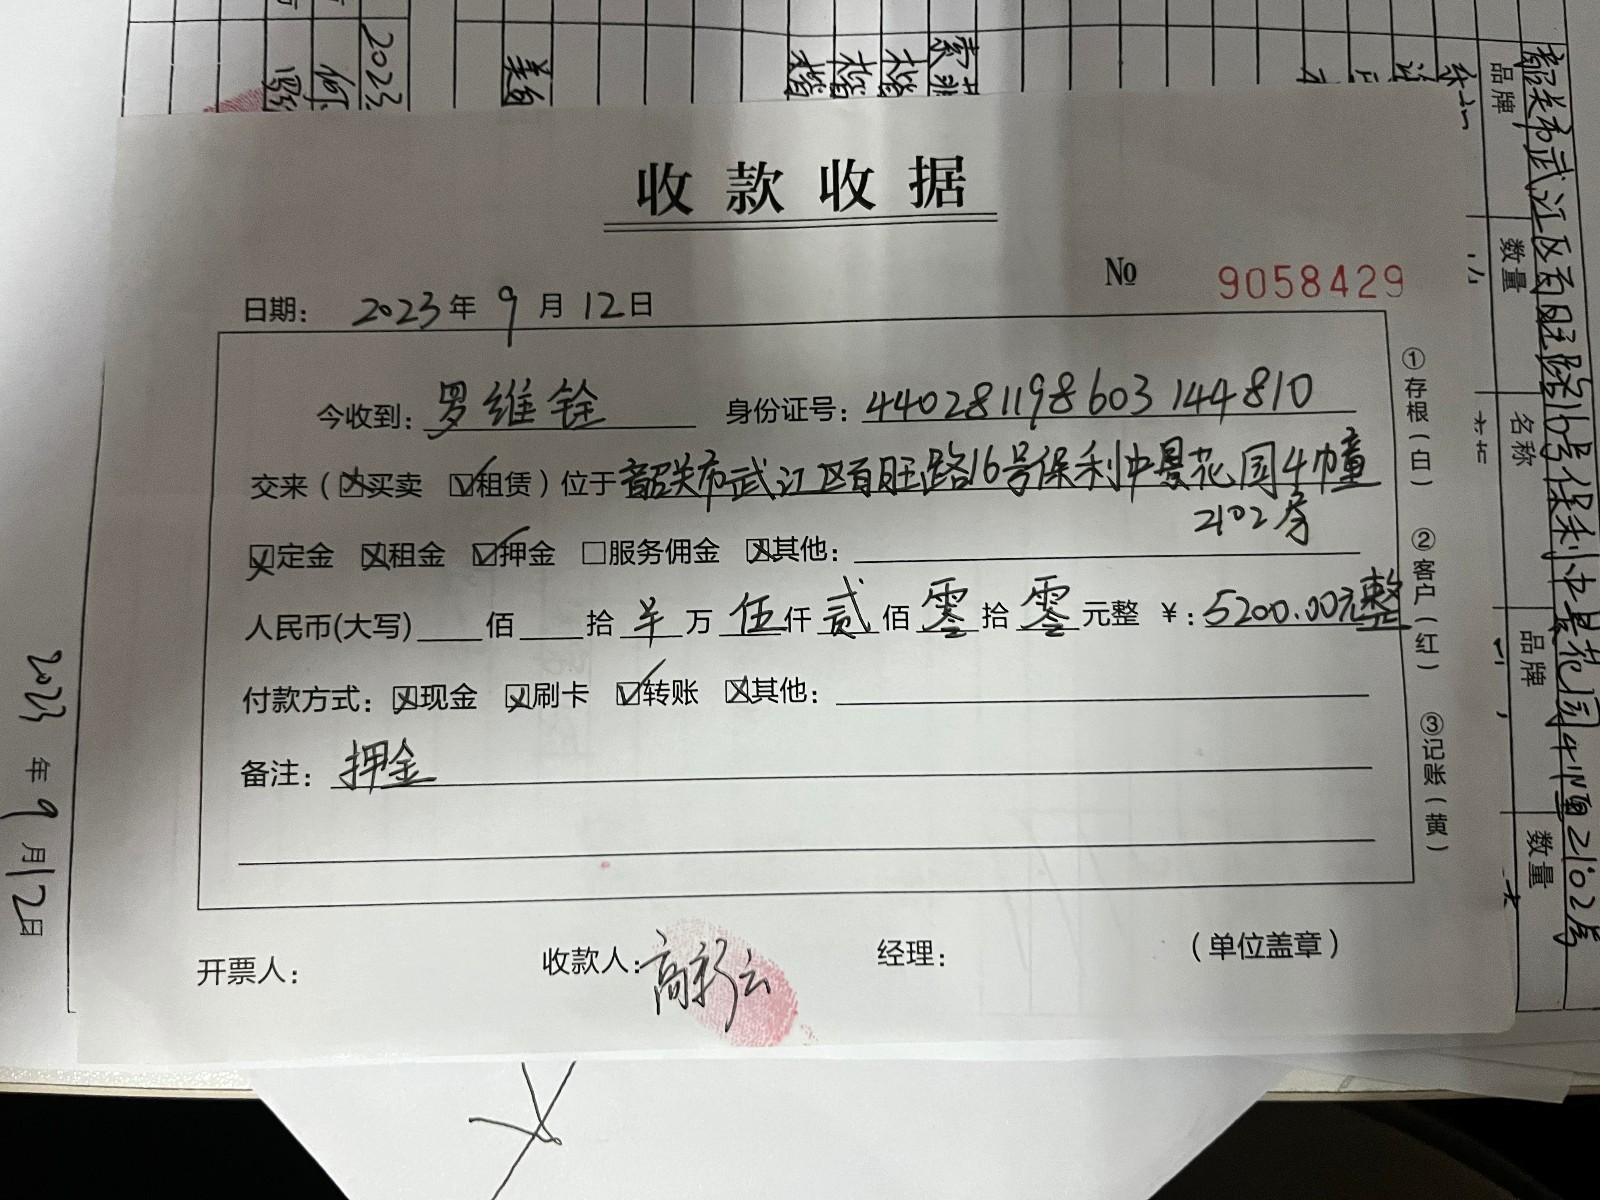 收款收据
№ 9058429
日期： 2023年 9月12日
今收到：罗维铨 身份证号：440281198603144810
交来（☒买卖 ☑租赁）位于韶关市武江区百旺路16号保利中景花园4幢
2102房
☒定金 ☒租金 ☑押金 □服务佣金 ☒其他：
人民币(大写) 佰 拾 羊 万 伍 仟 贰 佰 零 拾 零 元整 ￥：5200.00元整
付款方式：☒现金 ☒刷卡 ☑转账 ☒其他：
备注：押金
开票人： 收款人：高彩云 经理： （单位盖章）
①存根（白） ②客户（红） ③记账（黄）
2023年9月12日
韶关市武江区百旺路16号保利中景花园4幢2102房
品牌 数量 名称 品牌 数量
2023